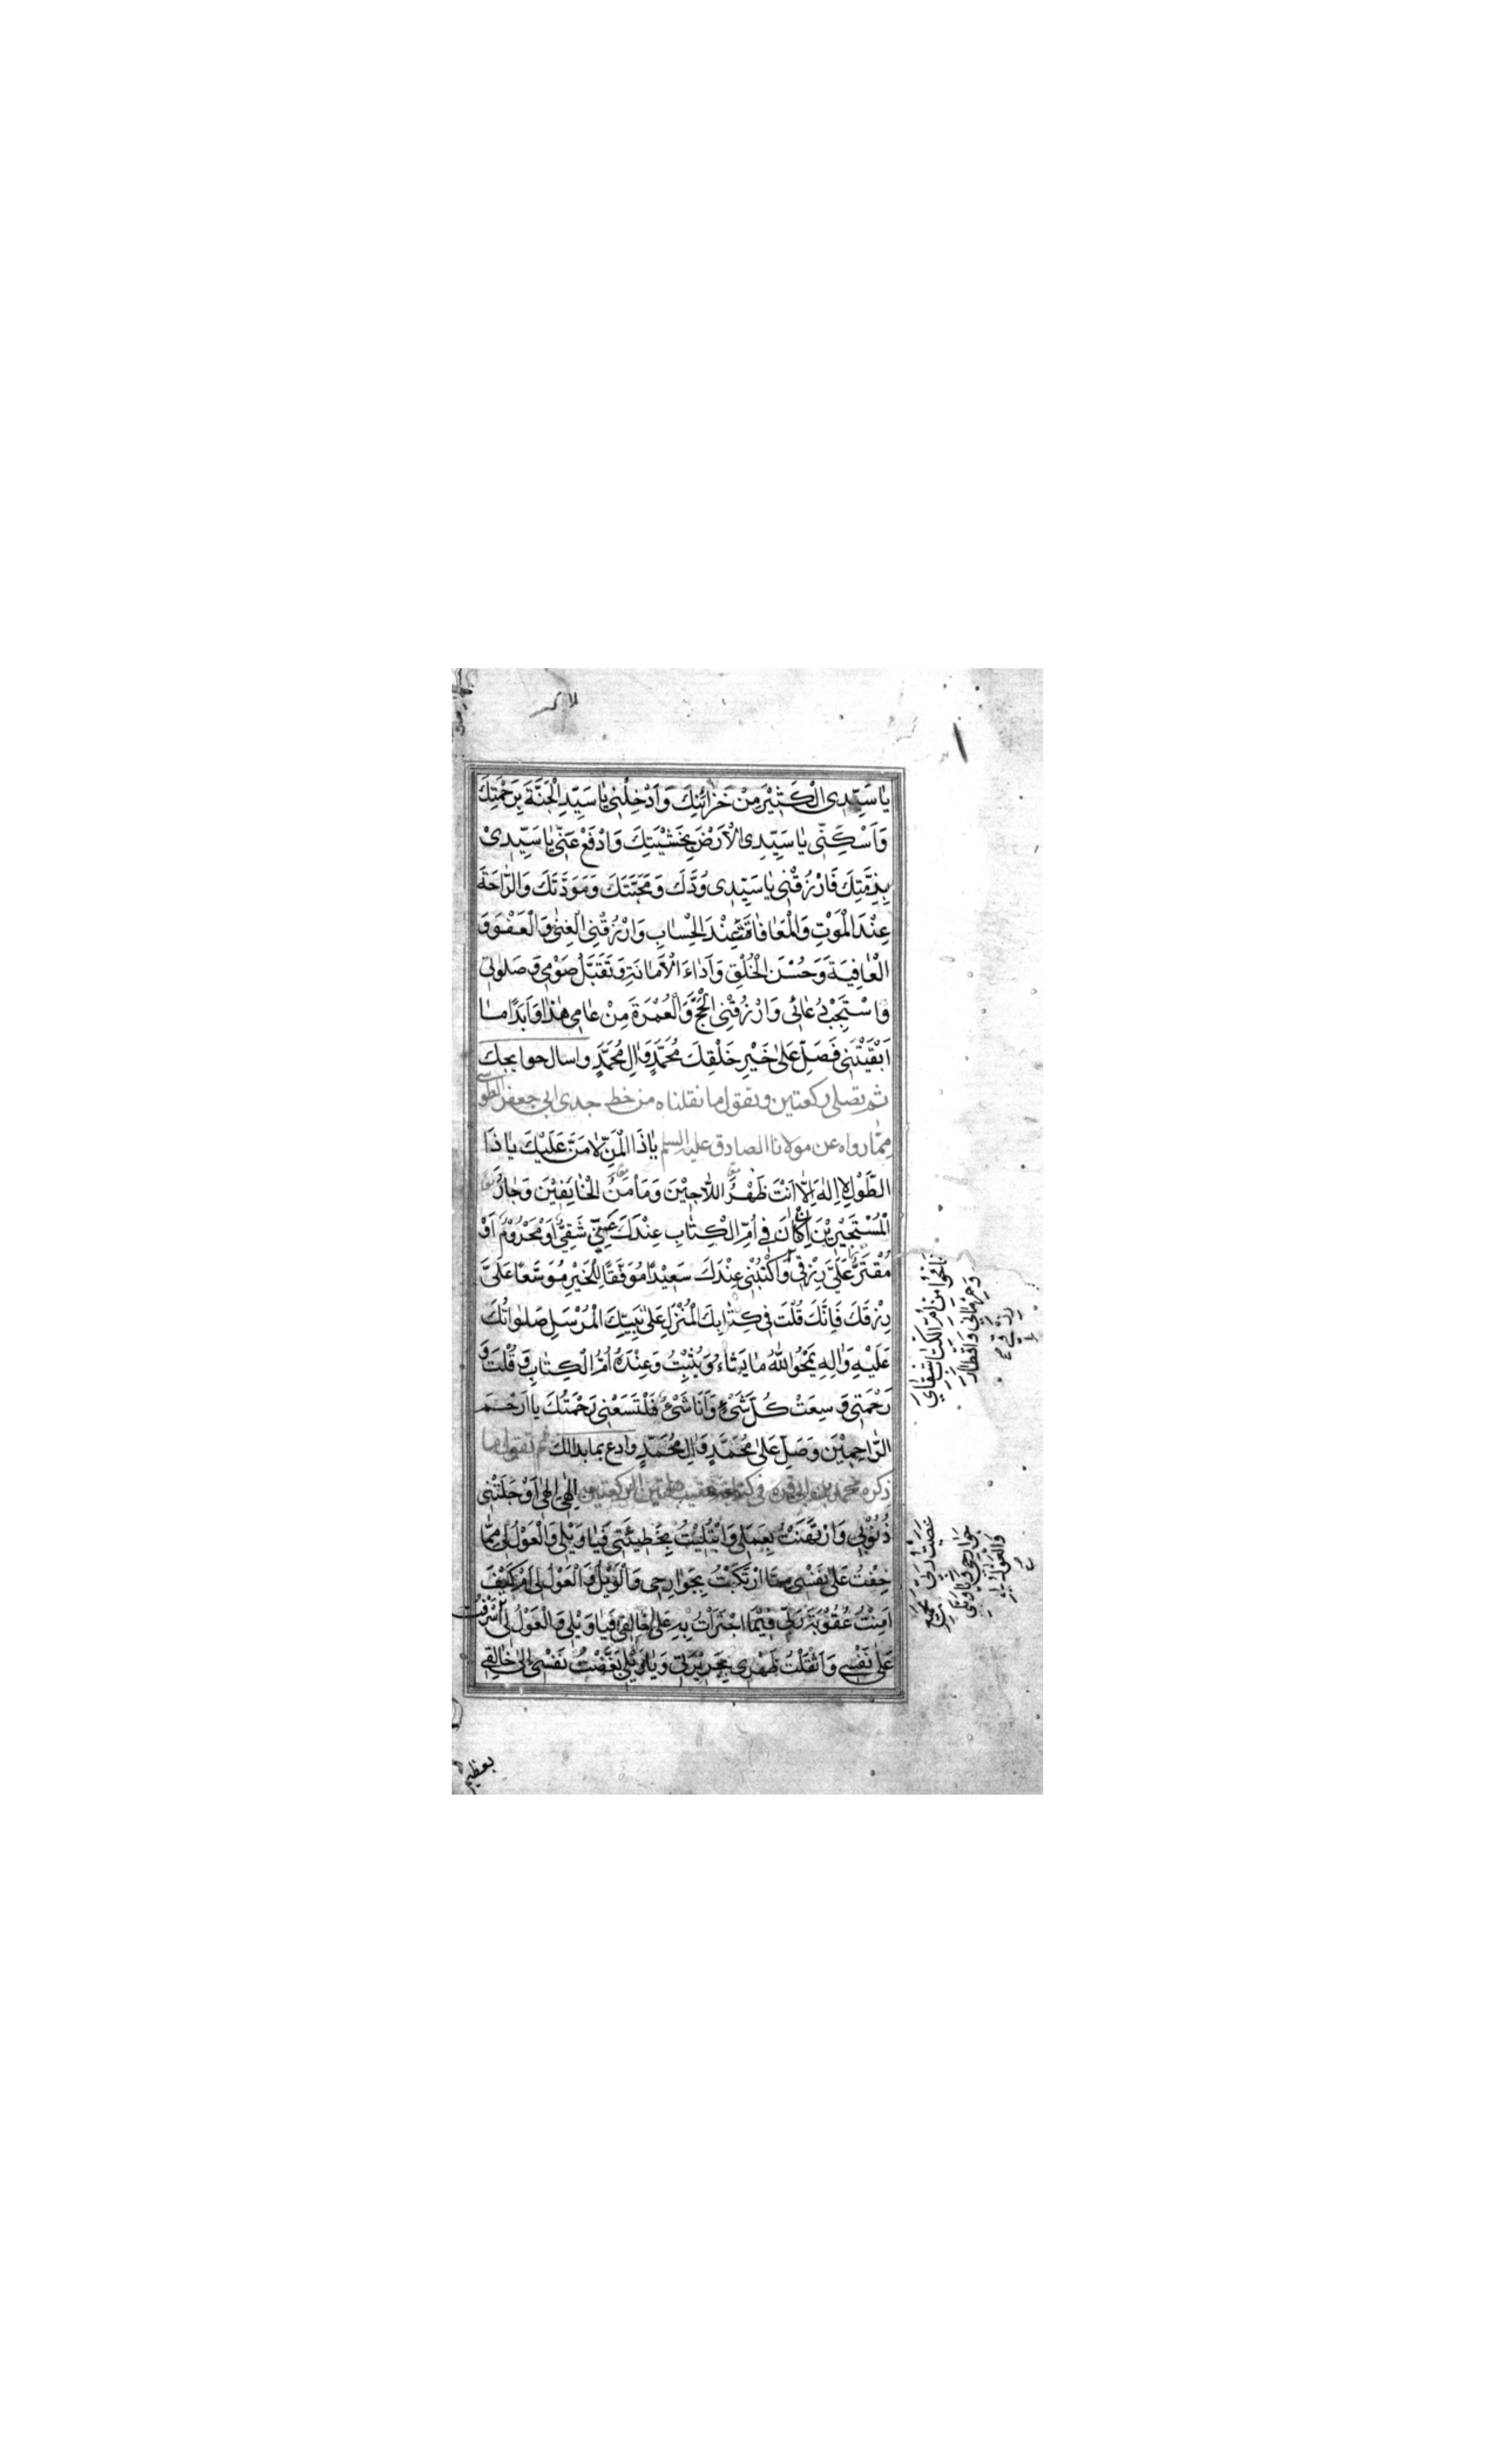 يَا سَيِّدِي الْكَثِيْرَ مِنْ خَزَائِنِكَ وَاَدْخِلْنِي يَا سَيِّدِ الْجَنَّةَ بِرَحْمَتِكَ
وَاَسْكِنِّي يَا سَيِّدِي الْاَرْضَ بِخَشْيَتِكَ وَادْفَعْ عَنِّي يَا سَيِّدِيْ
بِذِمَّتِكَ فَارْزُقْنِي يَا سَيِّدِي وُدَّكَ وَمَحَبَّتَكَ وَمَوَدَّتَكَ وَالرَّاحَةَ
عِنْدَ الْمَوْتِ وَالْمُعَافَاةَ عِنْدَ الْحِسَابِ وَارْزُقْنِي الْغِنٰى وَالْعَفْوَ وَ
الْعَافِيَةَ وَحُسْنَ الْخُلْقِ وَاَدَاءَ الْاَمَانَةِ وَتَقَبَّلْ صَوْمِي وَصَلٰوتِي
وَاسْتَجِبْ دُعَائِي وَارْزُقْنِي الْحَجَّ وَالْعُمْرَةَ مِنْ عَامِي هٰذَا وَاَبَدًا مَا
اَبْقَيْتَنِي فَصَلِّ عَلٰى خَيْرِ خَلْقِكَ مُحَمَّدٍ وَاٰلِ مُحَمَّدٍ واسال حوايجك
ثم تصلى ركعتين وتقول ما نقلناه من خط جدى ابى جعفر الطوسى
مِمَّا رواه عن مولانا الصادق عليه السلم يَا ذَا الْمَنِّ لَا مَنَّ عَلَيْكَ يَا ذَا
الطَّوْلِ لَا اِلٰهَ اِلَّا اَنْتَ ظَهْرُ اللَّاجِيْنَ وَمَأمَنُ الْخَايِفِيْنَ وَجَارُ
الْمُسْتَجِيْرِيْنَ اِنْ كَانَ فِي اُمِّ الْكِتَابِ عِنْدَكَ اَنِّي شَقِيٌّ اَوْ مَحْرُوْمٌ اَوْ
مُقْتَرٌّ عَلَيَّ رِزْقِي وَاكْتُبْنِي عِنْدَكَ سَعِيْدًا مُوَفَّقًا لِلْخَيْرِ مُوَسَّعًا عَلَيَّ
رِزْقَكَ فَاِنَّكَ قُلْتَ فِي كِتَابِكَ الْمُنْزَلِ عَلٰى نَبِيِّكَ الْمُرْسَلِ صَلَوَاتُكَ
عَلَيْهِ وَاٰلِهِ يَمْحُو اللّٰهُ مَا يَشَاءُ وَيُثْبِتُ وَعِنْدَهُ اُمُّ الْكِتَابِ وَقُلْتَ وَ
رَحْمَتِي وَسِعَتْ كُلَّ شَيْءٍ وَاَنَا شَيْءٌ فَلْتَسَعْنِي رَحْمَتُكَ يَا اَرْحَمَ
الرَّاحِمِيْنَ وَصَلِّ عَلٰى مُحَمَّدٍ وَاٰلِ مُحَمَّدٍ وادع بما بدالك ثم تقول ما
ذكره محمد بن ابى قره فى كتابه عقيب هاتين الركعتين اِلٰهِي اِلٰهِي اَوْجَلَتْنِي
ذُنُوْبِي وَارْتُهِنْتُ بِعَمَلِي وَابْتُلِيْتُ بِخَطِيئَتِي فَيَا وَيْلِي وَالْعَوْلُ لِي مِمَّا
خِفْتُ عَلٰى نَفْسِي مِمَّا ارْتَكَبْتُ بِجَوَارِحِي وَالْوَيْلُ وَالْعَوْلُ لِي اَمْ كَيْفَ
اَمِنْتُ عُقُوْبَةَ رَبِّي فِيْمَا اجْتَرَأْتُ بِهِ عَلٰى خَالِقِي فَيَا وَيْلِي وَالْعَوْلُ لِي اَسْرَفْتُ
عَلٰى نَفْسِي وَاَثْقَلْتُ ظَهْرِي بِجَرِيْرَتِي وَيَا وَيْلِي بَغَّضْتُ نَفْسِي اِلٰى خَالِقِي
فَامْحُ مِنْ اُمِّ الْكِتَابِ شَقَايَ
وَحِرْمَانِي وَاِقْتَارَ
رِزْقِي
عَصَيْتُ رَبِّي بِجَمِيعِ
جَوَارِحِي وَيَا وَيْلِي
وَالْعَوْلُ لِي
بعظيم